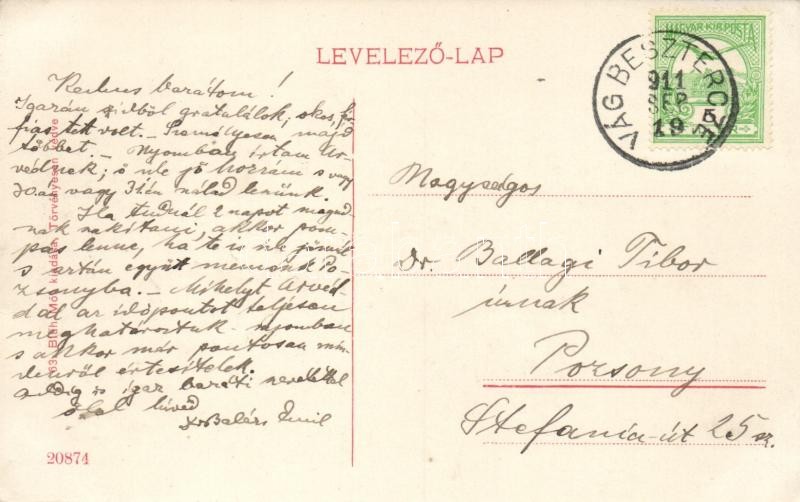 LEVELEZŐ-LAP
MAGYAR·KIR·POSTA
VÁG BESZTERCZE
911
SEP
19
Kedves barátom!
Igazán szívből gratulálok, okos, fér
fias tett volt. – Személyesen majd
többet. – Nyomban írtam Ár-
védnek; ő ide jő hozzám s vagy
30án vagy 31én nálad leszünk.
Ha tudnál 2 napot magad-
nak szakítani, akkor pom-
pás lenne, ha te is ide jönnél
s aztán együtt mennénk Po-
zsonyba. – Mihelyt Árvéd-
dal az időpontot teljesen
meghatároztuk – nyomban
s akkor már pontosan min-
denről értesítelek.
Addig is igaz baráti szeretettel
ölel híved
Dr Balázs Emil
Nagyságos
Dr. Ballagi Tibor
úrnak
Pozsony
Stefánia-út 25 sz.
Bieh Mór kiadása. Törvényesen védve
20874